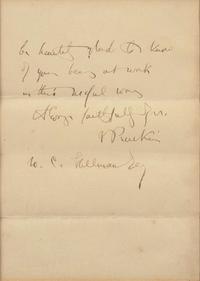 be heartily glad to know
of your being at work
in this useful way
Always faithfully yrs.
J Ruskin
W. C.